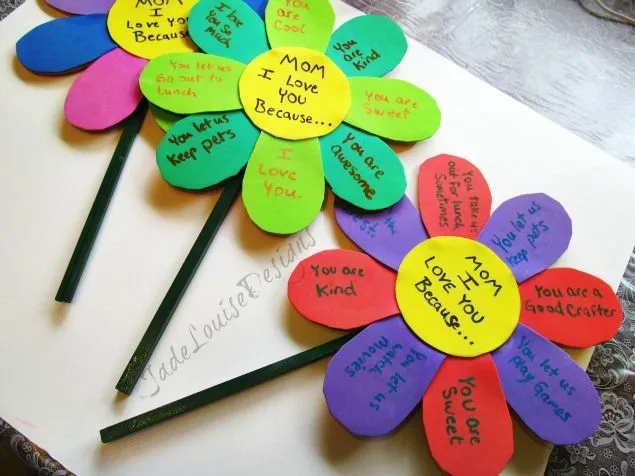 MOM
I
Love You
Because...
I love
You So
Much
You are
Cool
You are
Kind
You are
Sweet
You are
awesome
I
Love
You.
You let us
keep pets
You let us
Go out to
Lunch
MOM
I Love
YOU
Because...
You take us
out for lunch
Sometimes
You let us
keep pets
You are a
Good Crafter
You let us
play Games
You are
Sweet
You let us
watch
Movies
You are
Kind
MOM
I
LOVE YOU
Because...
JadeLouiseDesigns